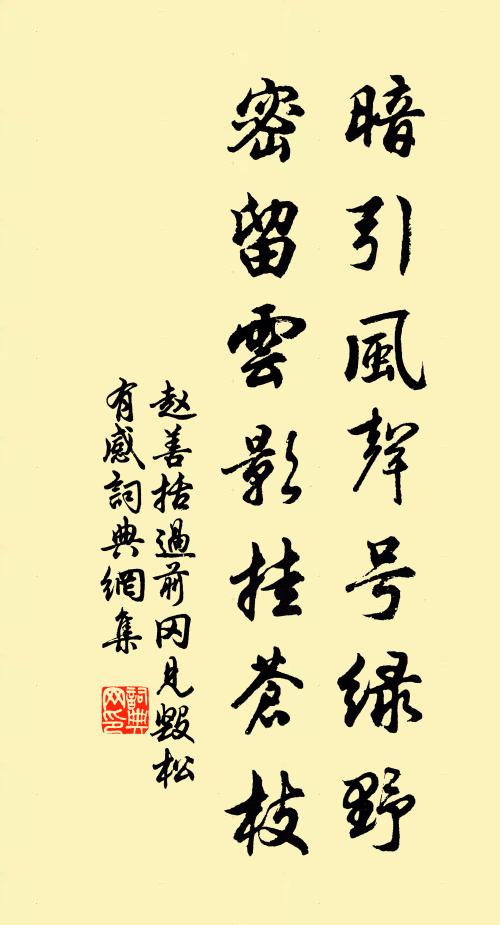 暗引風聲号绿野
密留雲影挂蒼枝
赵善括過前冈見毀松
有感詞典網集
詞典网印